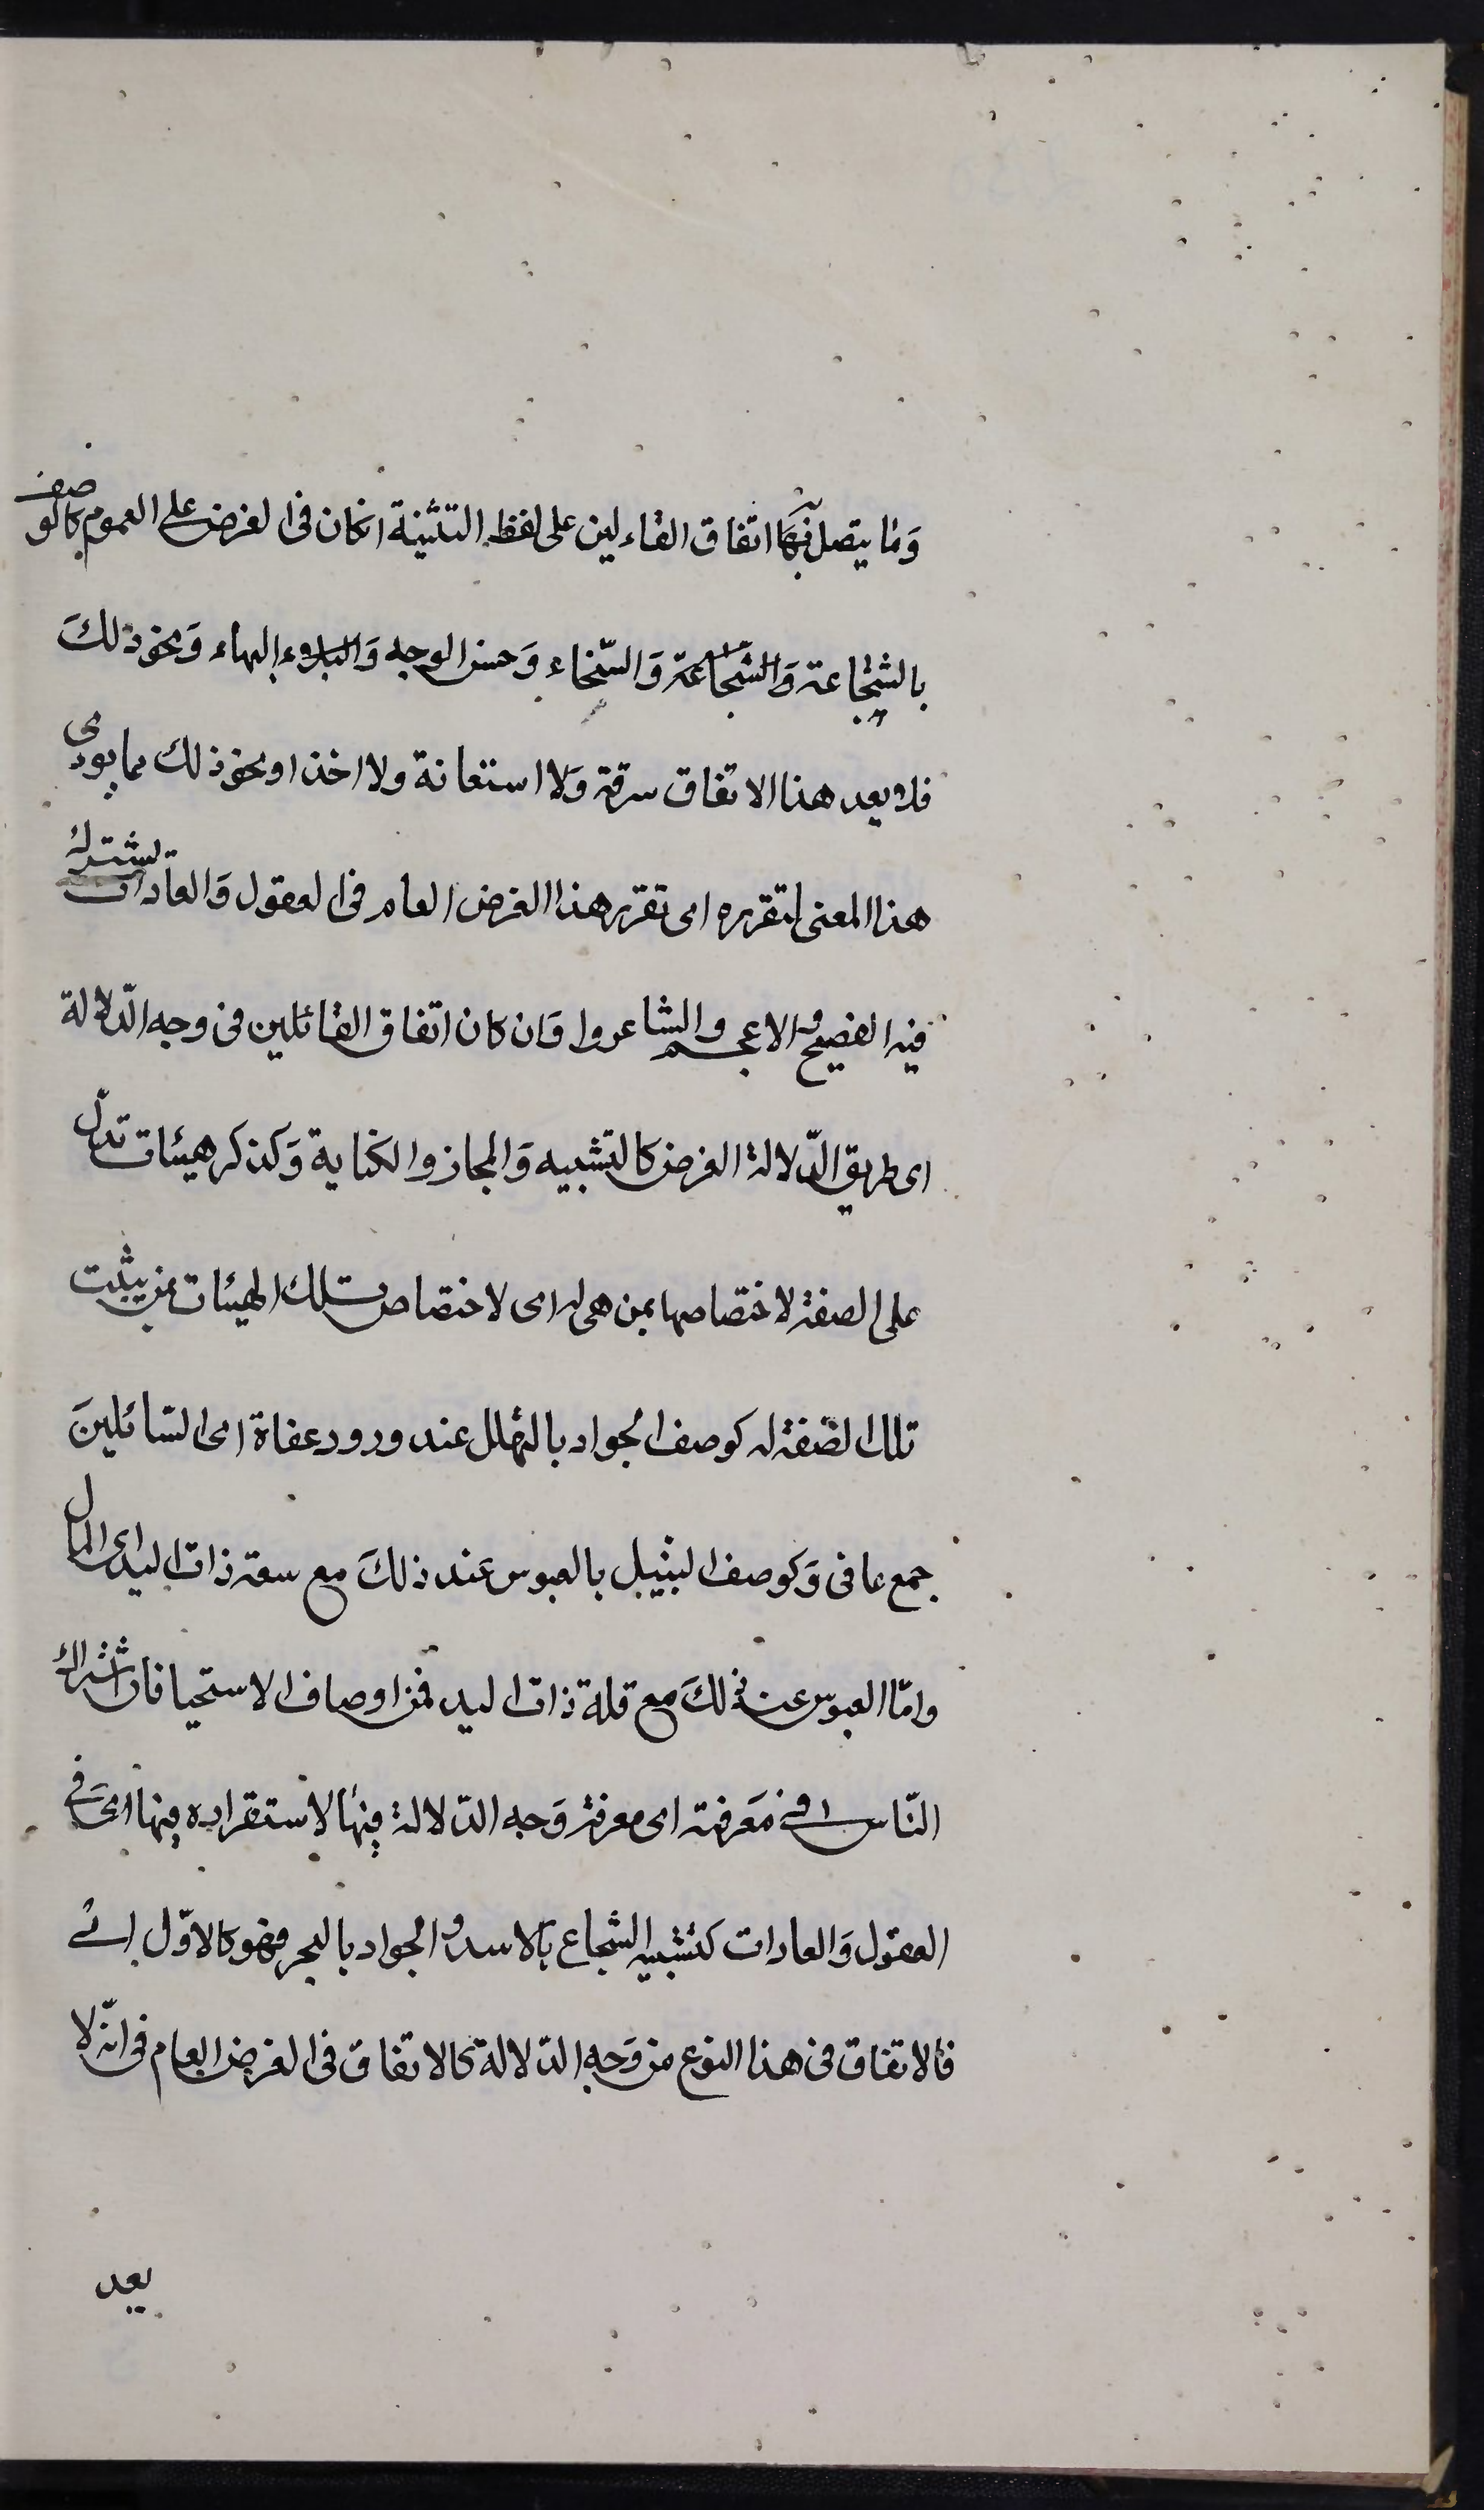 وَمَا يتصل بهَا اتفاق القاءلين على لفظ التثنية انكان فى الغرض على العموم كالوصف
بالشجاعة وَالشّجّاعة وَالسّخاء وَحسن الوجه وَالبهاء وَنحو ذلكَ
فلا يعد هذا الاتفاق سرقة وَلا استعانة ولا اخذا او نحو ذلك مما يودى
هذا المعنى لتقرره اى تقرر هذا الغرض العام فى العقول وَالعادات يشترك
فيه الفصيح و الاعجم والشاعر وا وَان كان اتفاق القائلين فى وجه الدّلالة
اى طريق الدّلالة الغرض كالتشبيه وَالمجاز والكناية وَكذكر هيئات تدلّ
على الصفة لاختصاصها بمن هى له اى لاختصاص تلك الهيئات بمن يثبت
تلك الصّفة له كوصف الجواد بالتهلل عند ورود عفاة اى السّائلينَ
جمع عافى وَكوصف البثيل بالعبوس عَند ذلكَ مع سعة ذات اليد اى المال
وامّا العبوس عند ذلكَ مع قلة ذات اليد فمن اوصاف الاستحيا فان اشتراك
النّاس فى مَعرفته اى معرفة وَجه الدّلالة فيهَا لاستقراره فيها اىَ فى
العقول وَالعادات كتشبيه الشجاع بالاسد و الجواد بالبحر فهو كالاوّل اى
فالاتفاق فى هذا النوع من وَجه الدّلالة كالاتفاق فى الغرض العام فى انّه لا
يعد